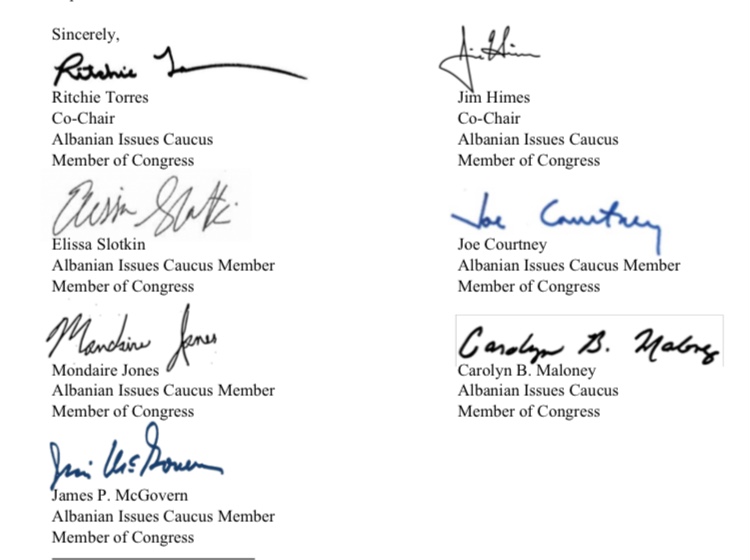 Sincerely,
Ritchie T
Ritchie Torres
Co-Chair
Albanian Issues Caucus
Member of Congress
Jim Himes
Co-Chair
Albanian Issues Caucus
Member of Congress
Elissa Slotkin
Elissa Slotkin
Albanian Issues Caucus Member
Member of Congress
Joe Courtney
Joe Courtney
Albanian Issues Caucus Member
Member of Congress
Mondaire Jones
Mondaire Jones
Albanian Issues Caucus Member
Member of Congress
Carolyn B. Maloney
Carolyn B. Maloney
Albanian Issues Caucus
Member of Congress
Jim McGovern
James P. McGovern
Albanian Issues Caucus Member
Member of Congress